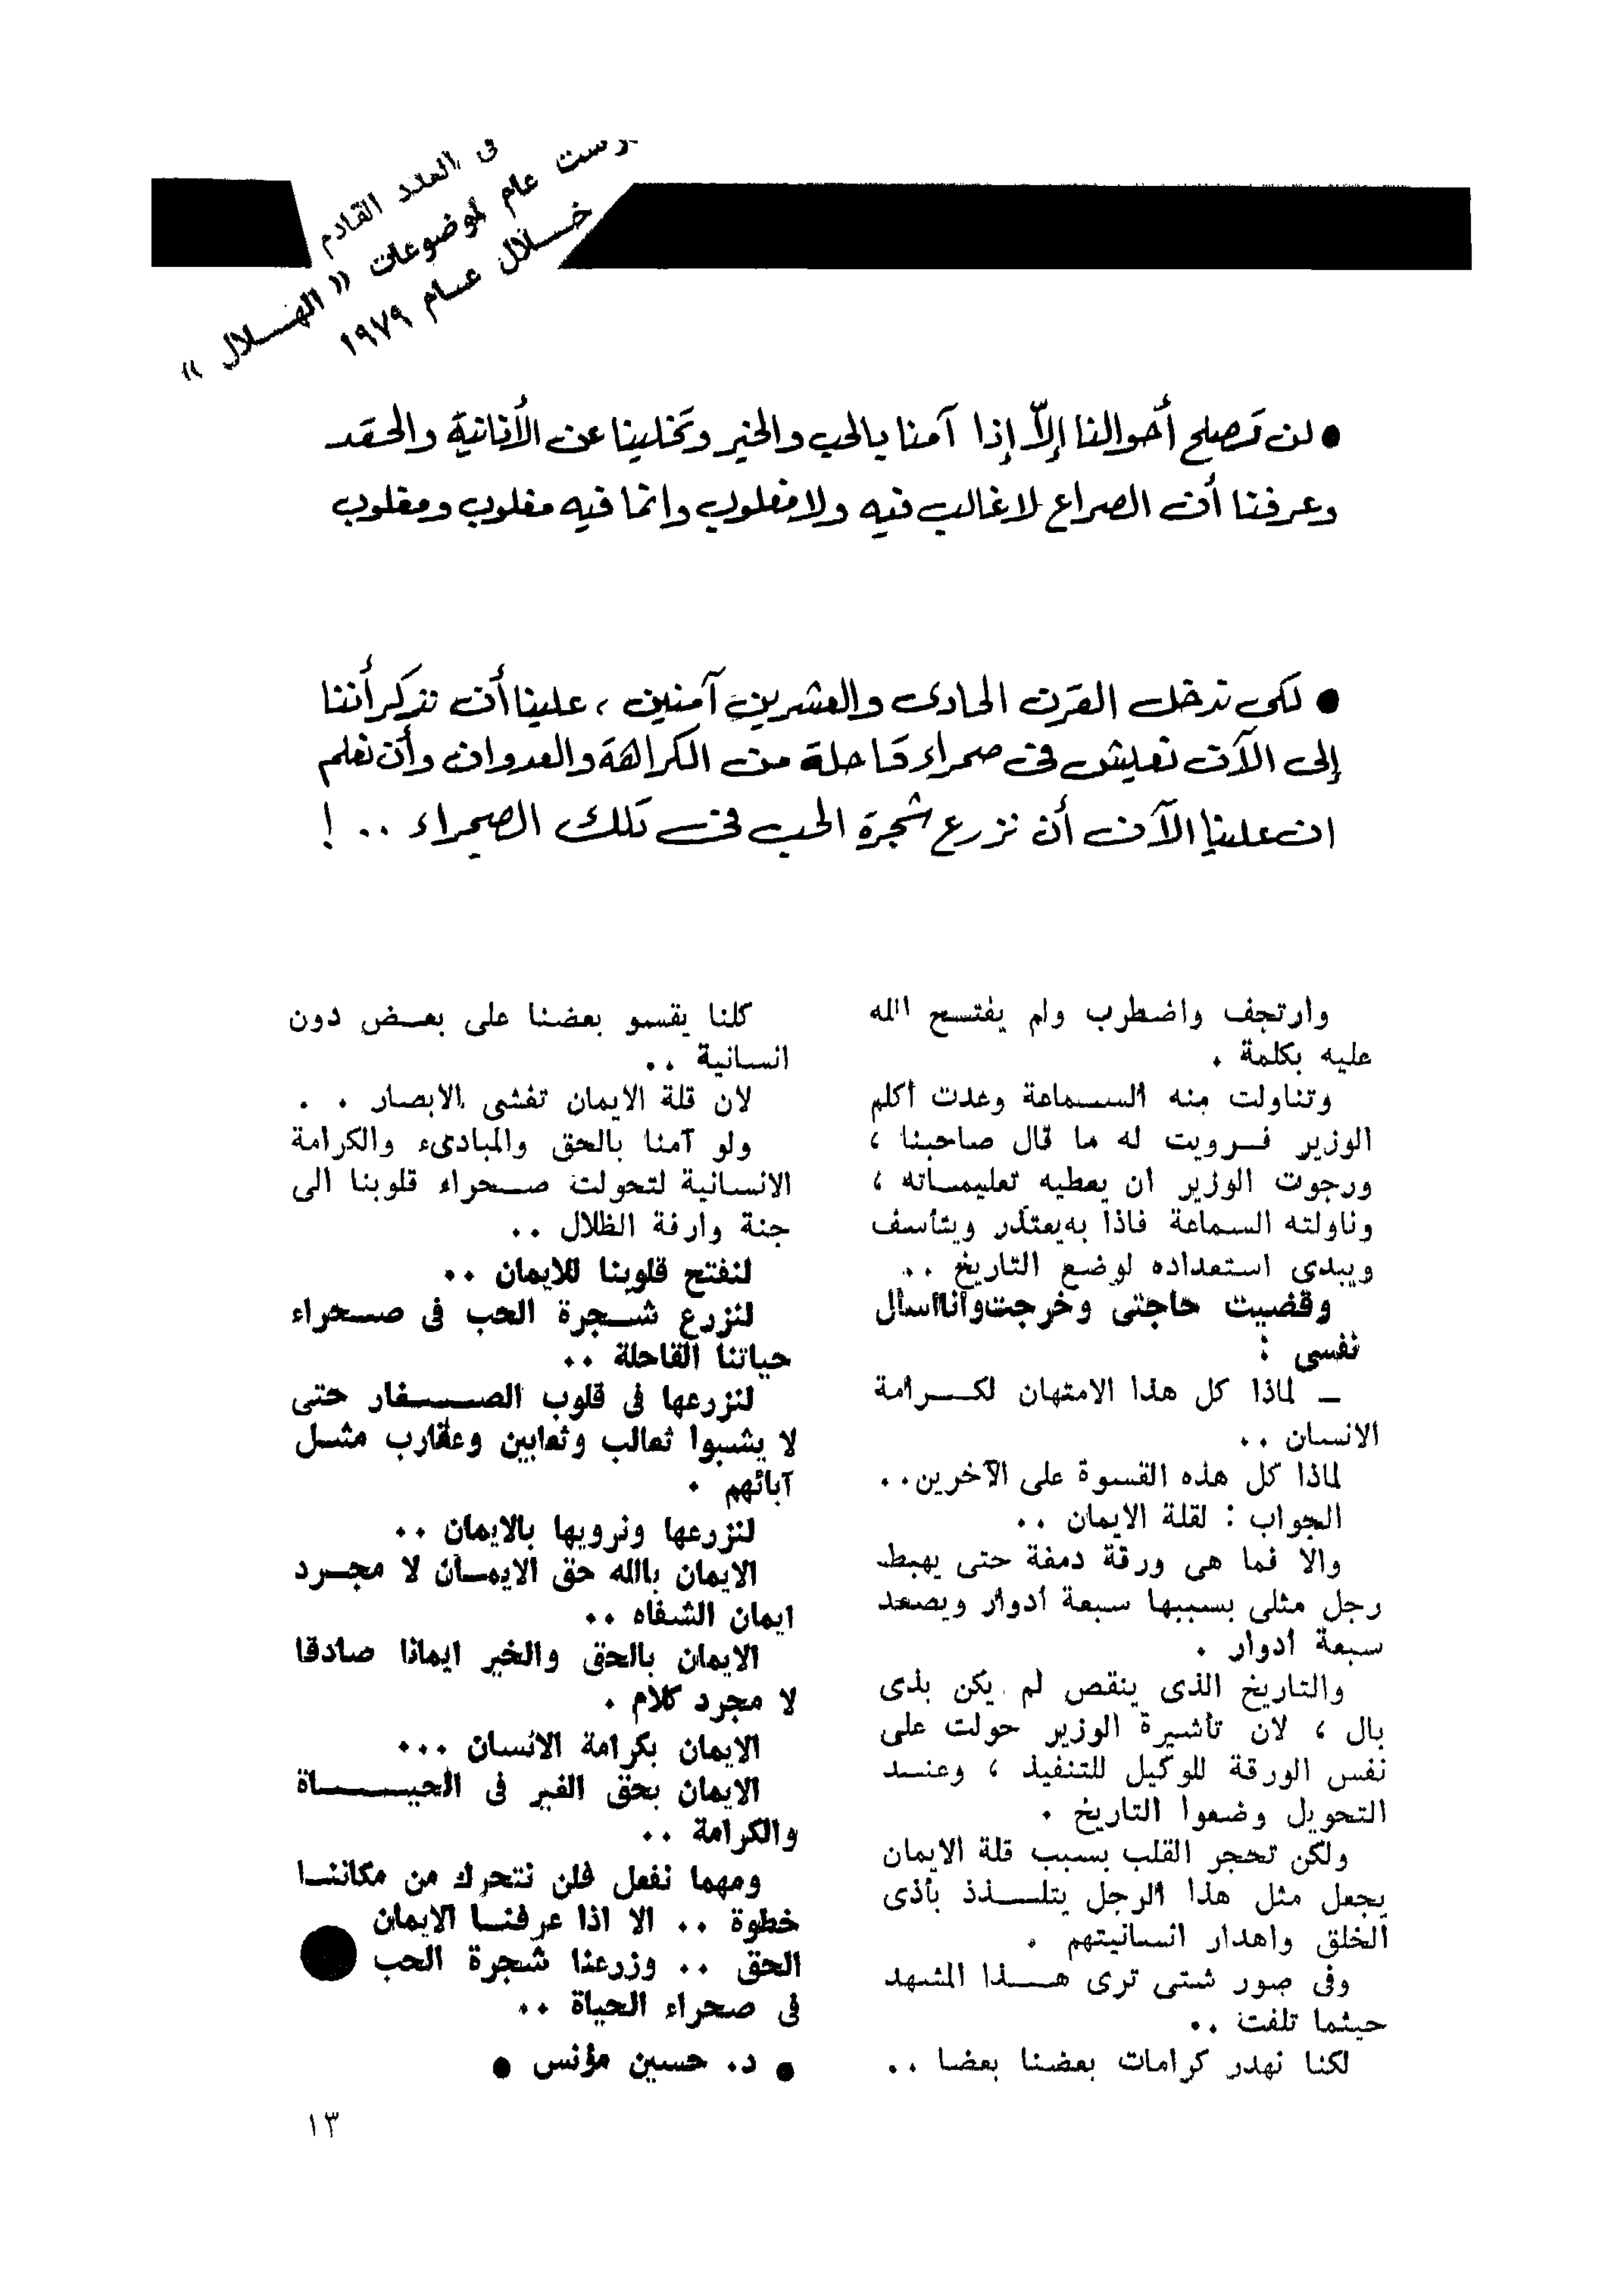 فى العدد القادم
عام لموضوعات « الهلال »
خلال عام ١٩٧٩
● لن تصلح أحوالنا إلاّ إذا آمنا بالحب والخير وتخلينا عن الأنانية والحقد
وعرفنا أن الصراع لا غالب فيه ولا مغلوب وانما فيه مغلوب ومغلوب
● لكى ندخل القرن الحادى والعشرين آمنين ، علينا أن نذكر أننا
إلى الآن نعيش فى صحراء قاحلة من الكراهة والعدوان وأن نعلم
ان علينا الآن أن نزرع شجرة الحب فى تلك الصحراء .. !
وارتجف واضطرب ولم يفتح الله
عليه بكلمة .
وتناولت منه السماعة وعدت أكلم
الوزير فرويت له ما قال صاحبنا ،
ورجوت الوزير ان يعطيه تعليماته ،
وناولته السماعة فاذا به يعتذر ويتأسف
ويبدى استعداده لوضع التاريخ ..
وقضيت حاجتى وخرجت وأنا أسأل
نفسى :
ـ لماذا كل هذا الامتهان لكرامة
الانسان ..
لماذا كل هذه القسوة على الآخرين ..
الجواب : لقلة الايمان ..
والا فما هى ورقة دمغة حتى يهبط
رجل مثلى بسببها سبعة أدوار ويصعد
سبعة أدوار .
والتاريخ الذى ينقص لم يكن بذى
بال ، لان تأشيرة الوزير حولت على
نفس الورقة للوكيل للتنفيذ ، وعند
التحويل وضعوا التاريخ .
ولكن تحجر القلب بسبب قلة الايمان
يجعل مثل هذا الرجل يتلذذ بأذى
الخلق واهدار انسانيتهم .
وفى صور شتى ترى هذا المشهد
حيثما تلفت ..
لكنا نهدر كرامات بعضنا بعضا ..
كلنا يقسو بعضنا على بعض دون
انسانية ..
لان قلة الايمان تغشى الابصار . .
ولو آمنا بالحق والمبادىء والكرامة
الانسانية لتحولت صحراء قلوبنا الى
جنة وارفة الظلال ..
لنفتح قلوبنا للايمان ..
لنزرع شجرة الحب فى صحراء
حياتنا القاحلة ..
لنزرعها فى قلوب الصغار حتى
لا يشبوا ثعالب وثعابين وعقارب مثل
آبائهم .
لنزرعها ونرويها بالايمان ..
الايمان بالله حق الايمان لا مجرد
ايمان الشفاه ..
الايمان بالحق والخير ايمانا صادقا
لا مجرد كلام .
الايمان بكرامة الانسان ...
الايمان بحق الغير فى الحياة
والكرامة ..
ومهما نفعل فلن نتحرك من مكاننا
خطوة .. الا اذا عرفنا الايمان
الحق .. وزرعنا شجرة الحب
فى صحراء الحياة ..
● د. حسين مؤنس ●
١٣